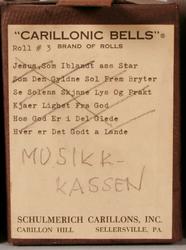 "CARILLONIC BELLS"®
Roll # 3 BRAND OF ROLLS
Jesus,Som Iblandt ass Star
Som Den Gyldne Sol Frem Bryter
Se Solens Skjønne Lys Og Prakt
Kjaer Lighet Fra God
Hos God Er i Del Glede
Hver er Det Godt a Lande
MUSIKK-
KASSEN
SCHULMERICH CARILLONS, INC.
CARILLON HILL SELLERSVILLE, PA.